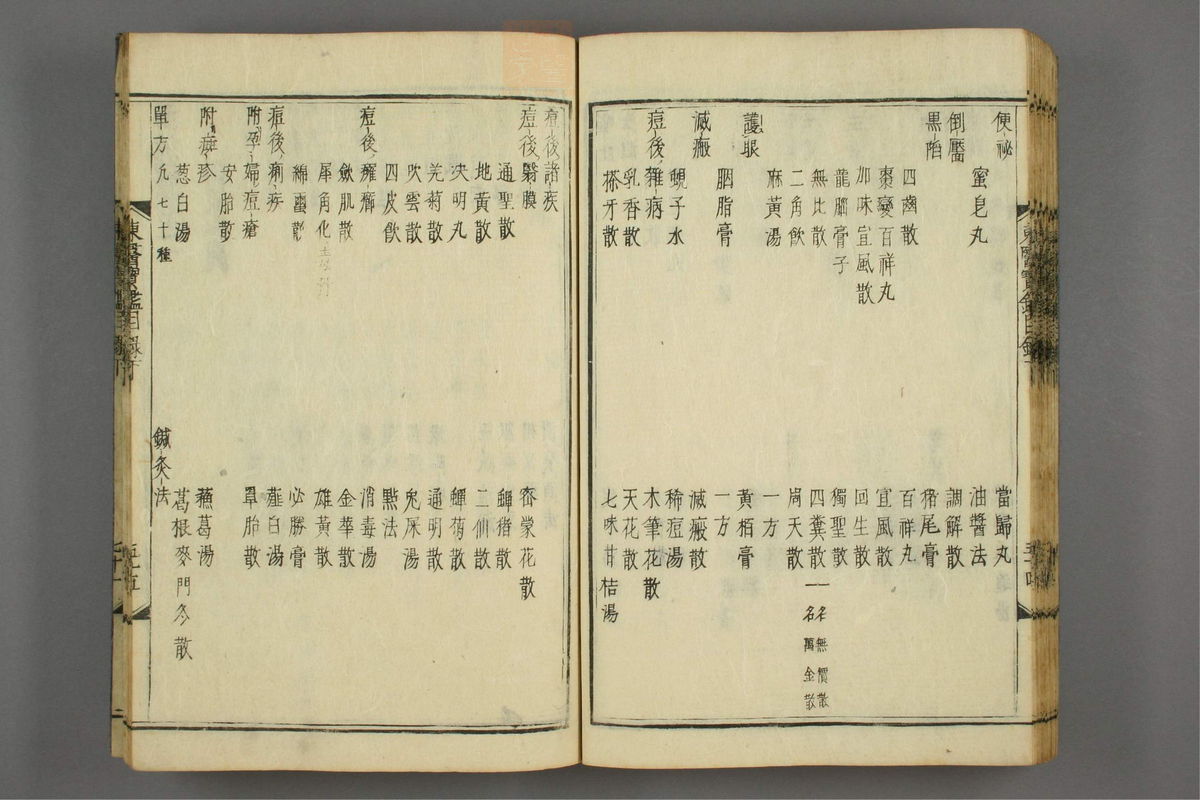 便祕
蜜皂丸　當歸丸
油醬法
倒靨　調解散
黒陷　猪尾膏
四齒散　百祥丸
棗變百祥丸　宣風散
加味宣風散　回生散
龍腦膏子　獨聖散
無比散　四糞散一名無價散一名萬金散
二角飲　周天散
麻黃湯　一方
護眼　黃栢膏
胭脂膏　一方
滅瘢　滅瘢散
蜆子水　稀痘湯
痘後雜病　木筆花散
乳香散　天花散
搽牙散　七味甘桔湯
痘後諸疾
痘後翳膜　密蒙花散
通聖散　蟬猪散
地黃散　二仙散
決明丸　蟬菊散
羌菊散　通明散
吹雲散　兔屎湯
四皮飲　點法
痘後癰癤　消毒湯
歛肌散　金華散
犀角化毒丹　雄黃散
綿蠒散　必勝膏
痘後痢疾　薤白湯
附孕婦痘瘡
安胎散　罩胎散
附㾦疹
葱白湯　蘇葛湯
葛根麥門冬散
單方凡七十種　鍼灸法
東醫寶鑑目錄下